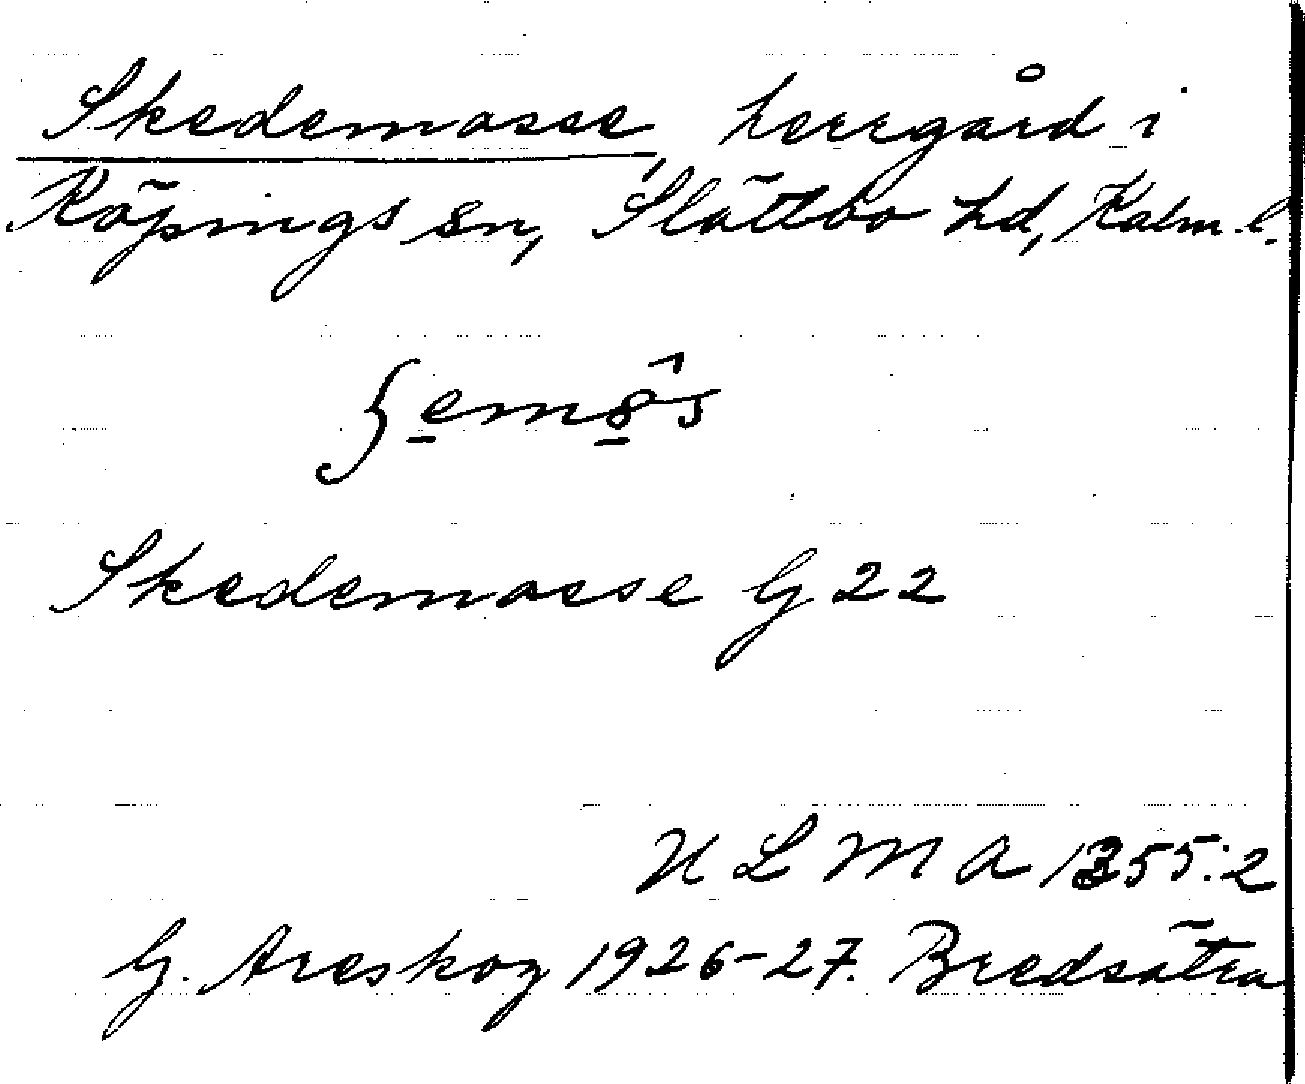 Skedemosse, herrgård i
Köpings sn, Slättbo hd, Kalm. l.
Skedemosse G 22
U L M A 1355:2
G. Areskog 1926-27. Bredsätra